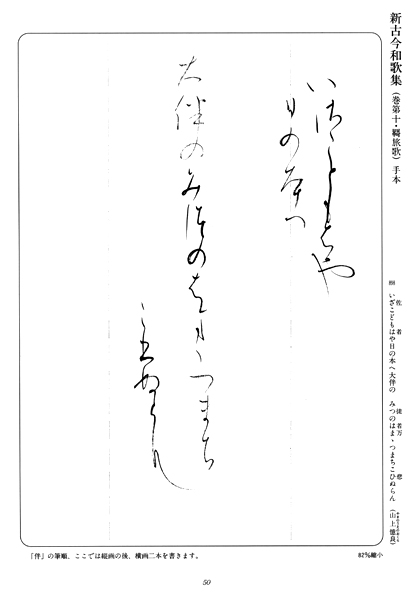 新古今和歌集（巻第十・羈旅歌）手本
いさこともはや
日の本へ
大伴のみつのはまゝつまち
こひぬらん
いざこどもはや日の本へ大伴の みつのはまゝつまちこひぬらん （山上憶良）
佐 者 徒 者万 悲
「伴」の筆順、ここでは縦画の後、横画二本を書きます。
82％縮小
50